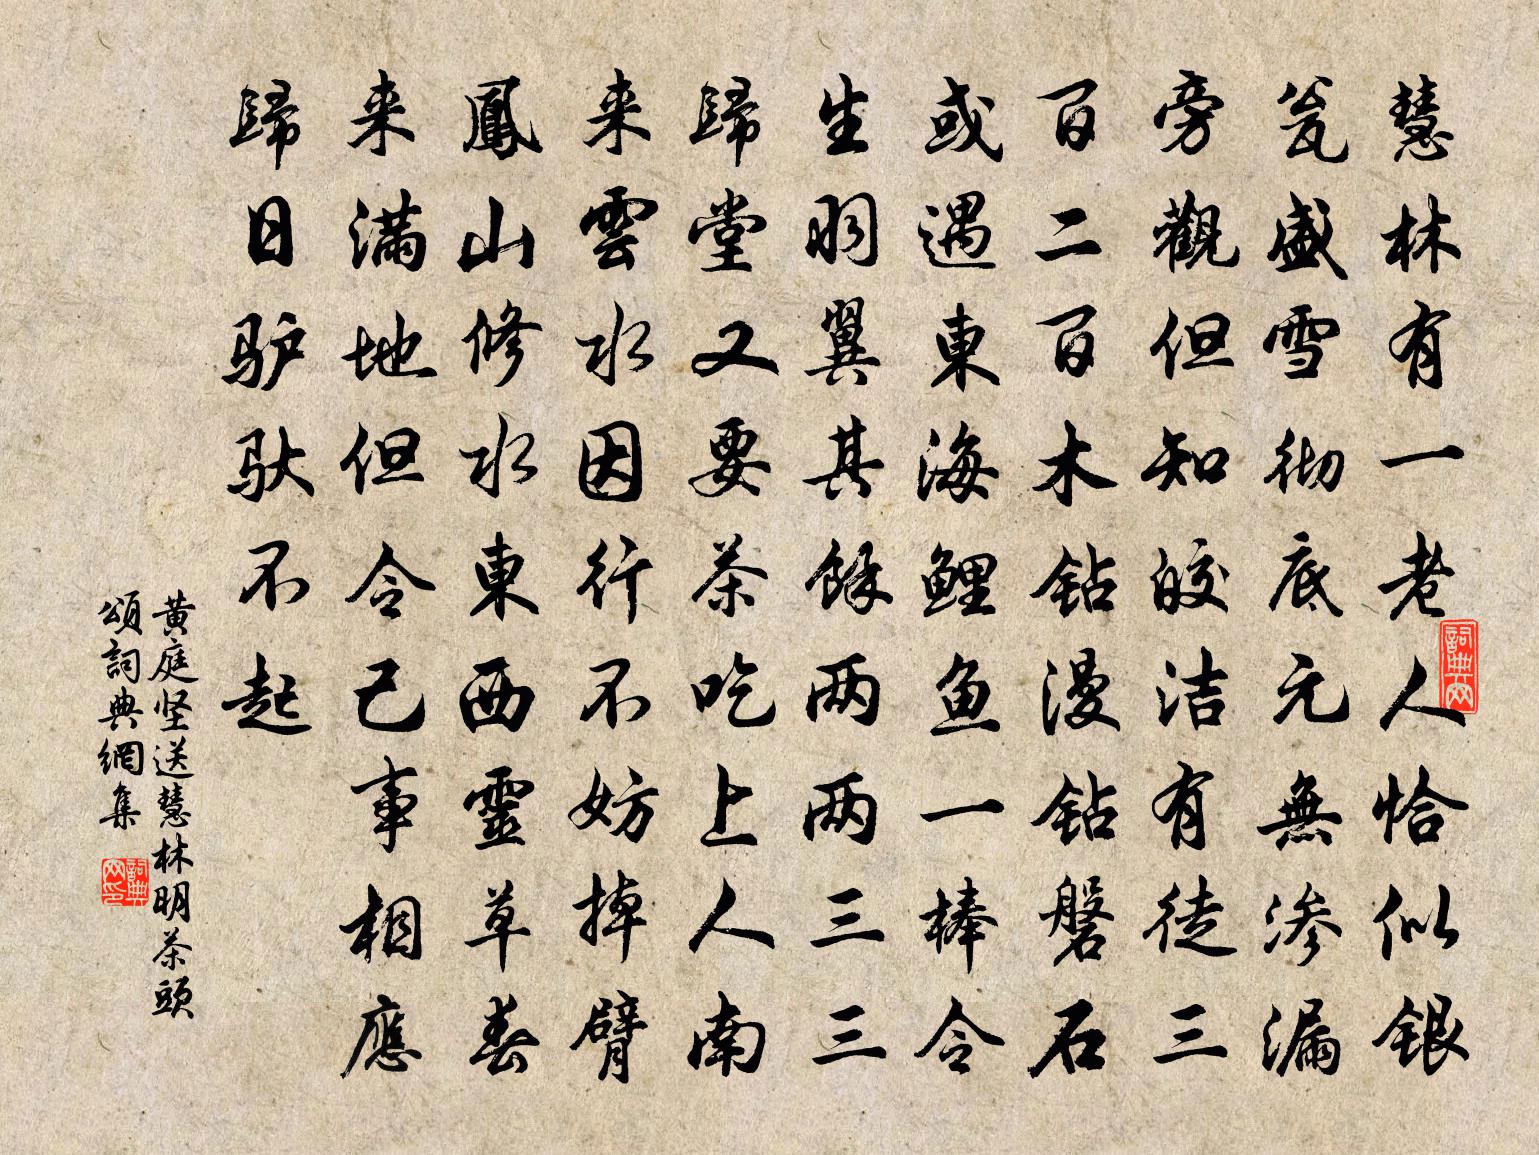 慧林有一老人恰似銀
瓮盛雪彻底元無渗漏
旁觀但知皎洁有徒三
百二百木钻漫钻磐石
或遇東海鲤鱼一棒令
生羽翼其餘两两三三
歸堂又要茶吃上人南
来雲水因行不妨掉臂
鳳山修水東西靈草春
来满地但令己事相應
歸日驴馱不起
黄庭坚送慧林明茶頭
頌詞典網集
詞典网
詞典网印